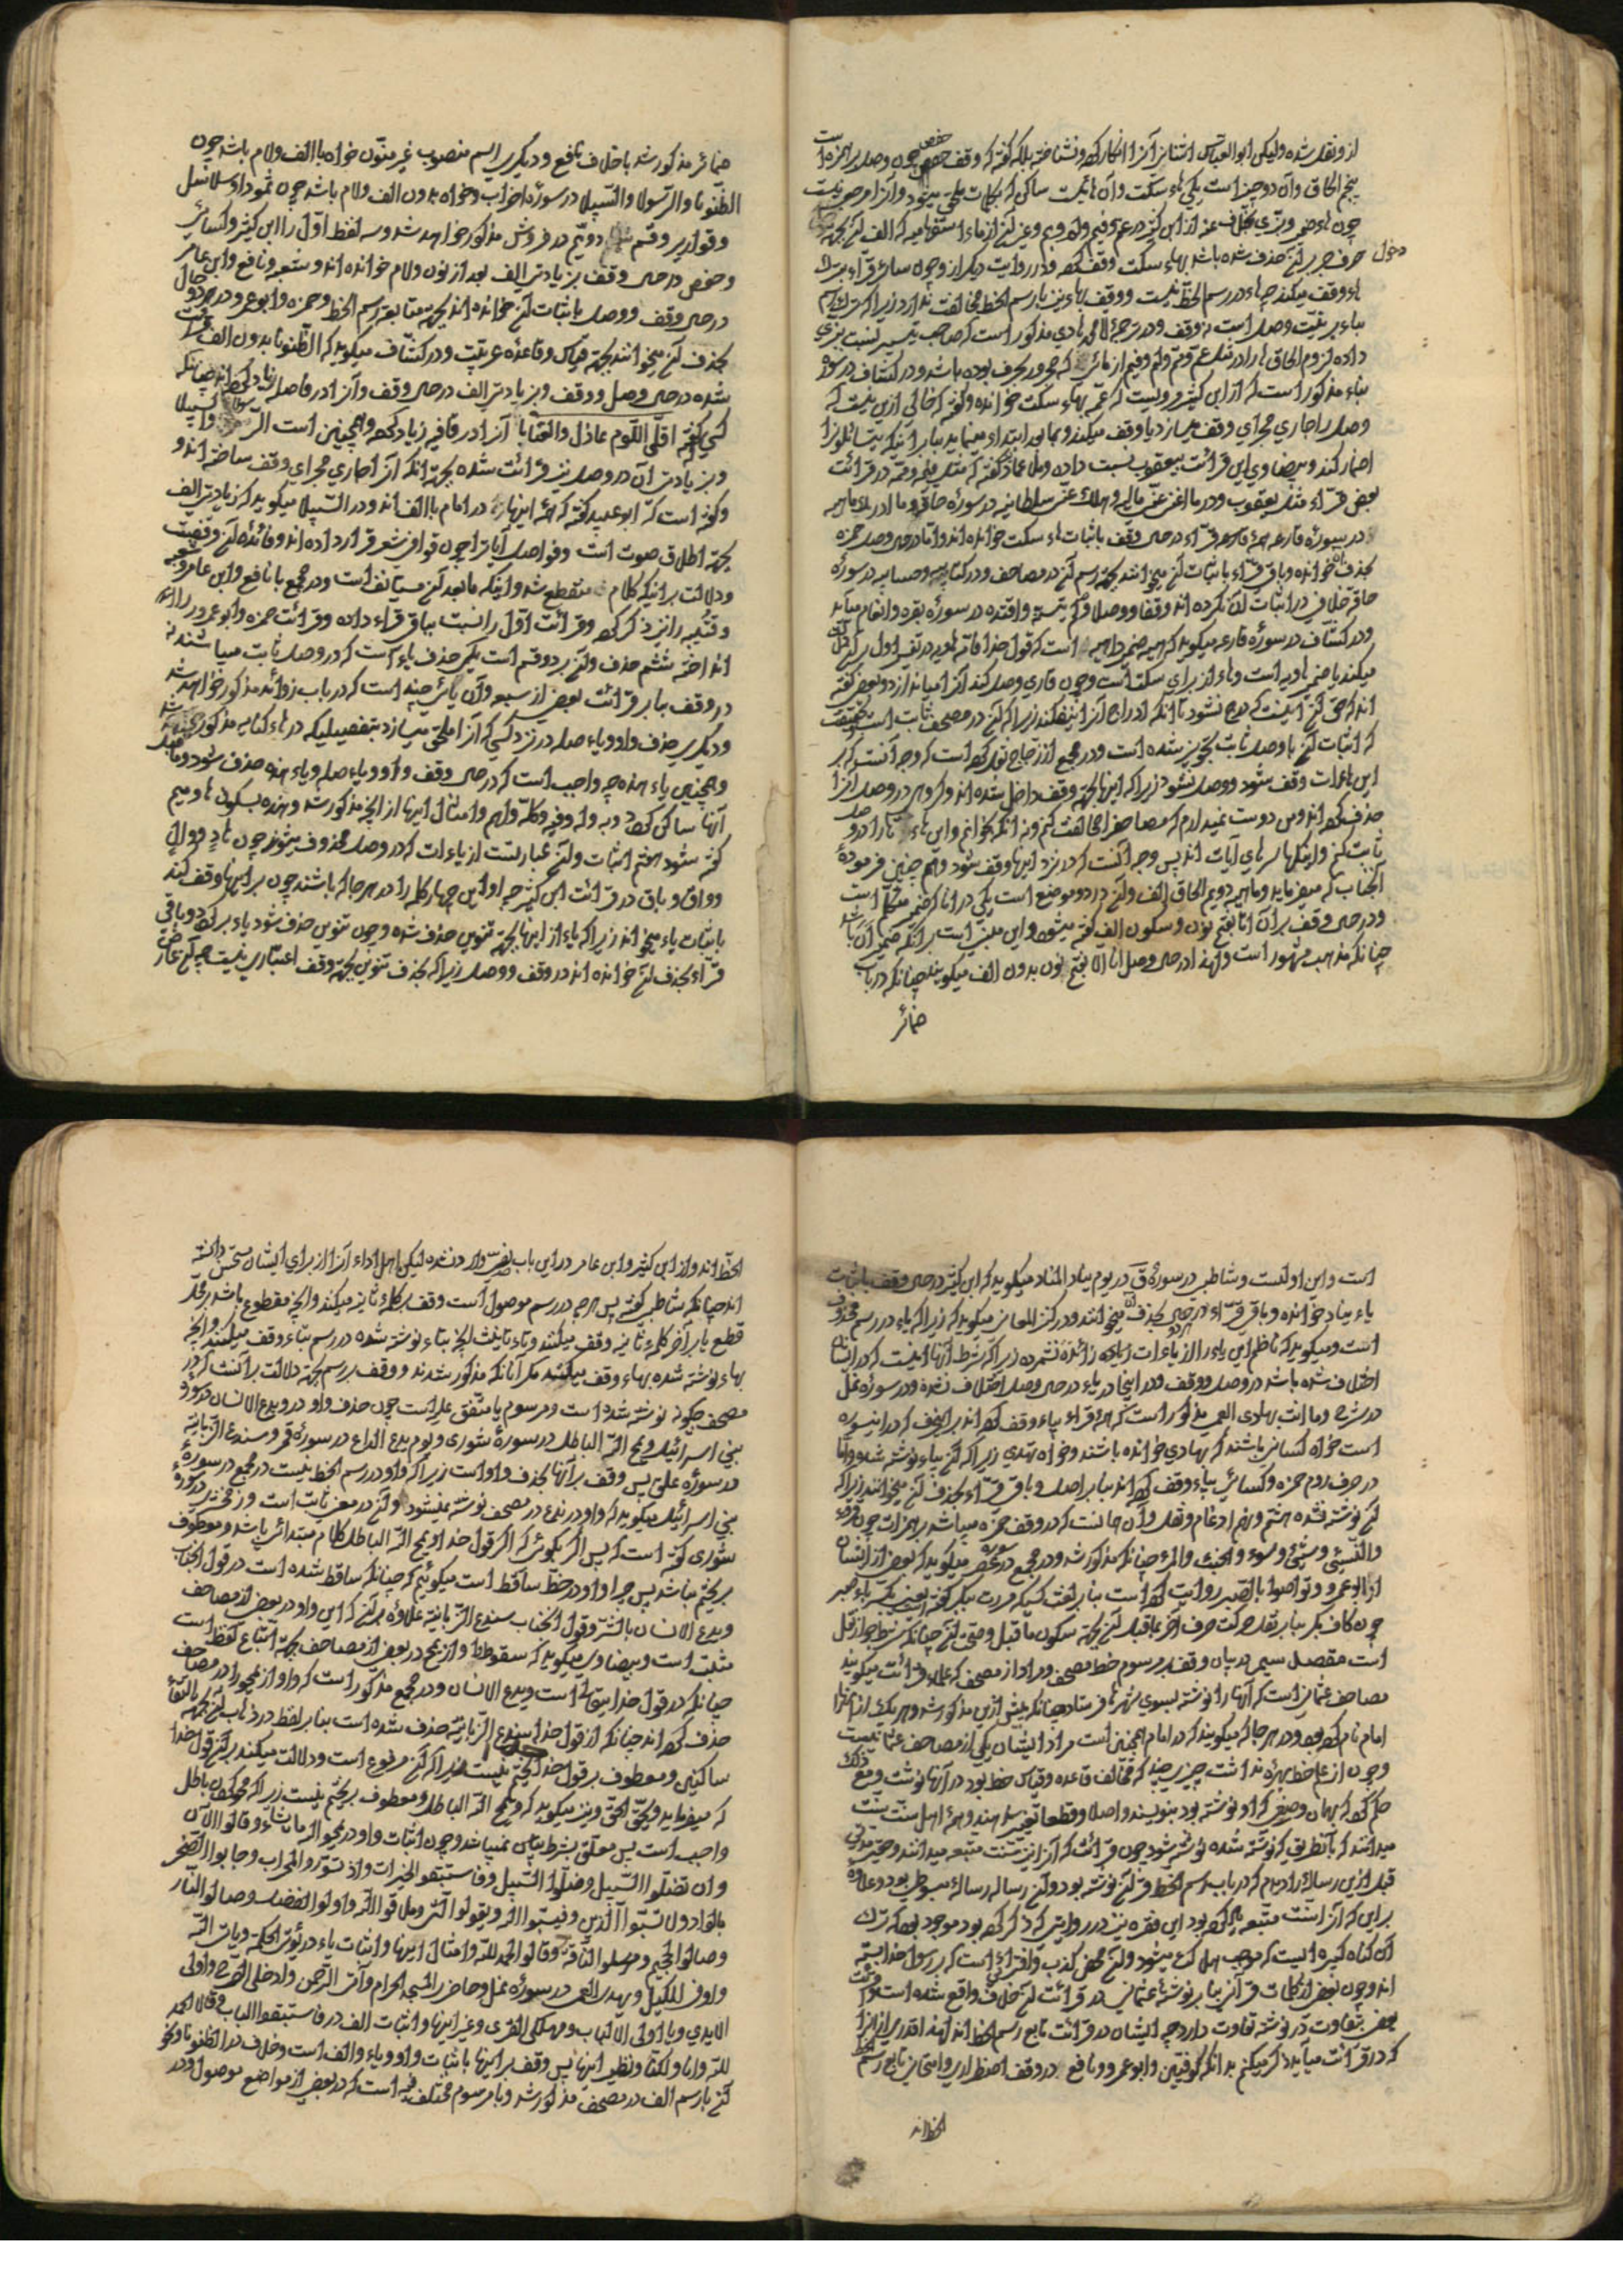 از و نقل شده وليكن ابو العباس اشنائي آنرا انكار كرده و نشناخته بلكه گفته كه وقف حفص چون وصل بر همزه است
پنجم الحاق و آن دو چيز است يكي هاء سكت و آن هائيست ساكن كه بكلمات ملحق ميشود و آنرا
حرف جر بر لنچه حذف شده باشد بهاء سكت وقف كرده و در روايت ديگر از و چون سائر قراء بترك
هاء وقف ميكند چه هاء در رسم الخط نيست و وقف بهاء نيز با رسم الخط مخالفت ندارد زيرا كه
بناء بر نيت وصل است نه وقف و در ترجمهٔ مذكور است كه صاحب تيسير نسبت بزي
داده لزوم الحاق هارا در مثل عم و مم و لم و فيم از مائي كه مجرور بحرف بوده باشد و در كشاف در سورهٔ
نباء مذكور است كه از ابن كثير مرويست كه عمه بهاء سكت خوانده و گفته كه خالي ازين نيست كه
وصل را جاري مجراي وقف ميسازد يا وقف ميكند و بما بعد ابتداء مينمايد بنابر اينكه يتسائلون را
اضمار كند و بيضاوي اين قرائت بيعقوب نسبت داده
بعض قراء مثل يعقوب و در ما اغنى عنى ماليه و هلك عنى سلطانيه در سورهٔ حاقه و ما ادريك ماهيه
در سورهٔ قارعه همهٔ قراء در حين وقف باثبات هاء سكت خوانده اند و اما در حين وصل حمزه
بحذف خوانده و باقي قراء باثبات لن ميخوانند بجهت رسم لن در مصاحف و در كتابيه و حسابيه در سورهٔ
حاقه خلافي در اثبات آن نكرده اند وقفا و وصلا و لم يتسنه و اقتده در سورهٔ بقره و انعام ميآيد
و در كشاف در سورهٔ قارعه ميگويد كه هيه ضمير داهيه است
ميكند يا ضمير هاويه است و هاء از براي سكت است و چون قاري وصل كند آنرا مياندازد و بعضي گفته
اند كه حق لن اينست كه درج نشود تا آنكه ادراج آنرا نيفكند زيرا كه لن در مصحف ثابت است
كه اثبات لن با وصل نيز تجويز شده است و در مجمع از زجاج نقل كرده است كه وجه آنست كه بر
اين هاءات وقف شود و وصل نشود زيرا كه اينها بجهت وقف داخل شده اند و گروهي در وصل آنرا
حذف كرده اند و من دوست نميدارم كه مصاحف را مخالفت كنم و نه آنكه بخوانم و اين هاء
ثابت كنم و اينها سرهاي آيات اند پس وجه آنست كه در نزد اينها وقف شود و هم چنين فرموده
آنجناب كه ميفرمايد و ماهيه دويم الحاق الف و لن در دو موضع است يكي در انا كه ضمير متكلم است
و در حين وقف بر آن انا بفتح نون و سكون الف گفته ميشود و اين مبني است بر آنكه ضمير ان باشد
چنانكه مذهب مشهور است و لهذا در حين وصل انا الا بفتح نون بدون الف ميگويند چنانكه در باب
ضمائر
ضمائر مذكور شد باخلاف نافع و ديگري بر اسم منصوب غير منون خواه با الف و لام باشد چون
الظنونا و الرسولا و السبيلا در سورهٔ احزاب و خواه بدون الف و لام باشد چون ثمودا و سلاسل
و قوارير و قسم دويم در فروش مذكور خواهد شد و سه لفظ اول را ابن كثير و كسائي
و حفص در حين وقف بزيادتي الف بعد از نون و لام خوانده اند و شعبه و نافع و ابن عامر
در حين وقف و وصل باثبات لن خوانده اند بجهت متابعت رسم الخط و حمزه و ابو عمرو در هر دو حال
بحذف لن ميخوانند بجهت قياس و قاعدهٔ عربيت و در كشاف ميگويد كه الظنونا بدون الف قرائت
شده در حين وصل و وقف و بزيادتي الف در حين وقف و آنرا در فاصله زياد كرده اند چنانكه
كسي گفته اقلي اللوم عاذل و العتابا آنرا در قافيه زياد كرده و همچنين است الرسولا و السبيلا
و بزيادتي آن در وصل نيز قرائت شده بجهت آنكه آنرا جاري مجراي وقف ساخته اند و
و گفته است كه ابو عبيد گفته كه همهٔ اينها در امام با الف اند و در السبيلا ميگويد كه زيادتي الف
بجهت اطلاق صوت است و فواصل آيات را چون قوافي شعر قرار داده اند و فائدهٔ لن وقفست
و دلالت بر اينكه كلام منقطع شد و اينكه مابعد لن مستأنف است و در مجمع با نافع و ابن عامر و شعبه
و قتيبه را نيز ذكر كرده و قرائت اول را نسبت بباقي قراء داده و قرائت حمزه و ابو عمرو
اند اخته ششم حذف و لن بر دو قسم است يكي حذف ياء است كه در وصل ثابت ميباشند نه
در وقف بنابر قرائت بعضي از سبعه و آن يائي چند است كه در باب زوائد مذكور خواهد شد
و ديگري حذف واو و ياء صله در نزد كسي كه آنرا ملحق ميسازد بتفصيليكه در هاء كنايه مذكور شد
و همچنين ياء هذه چه واجب است كه در حين وقف واو و ياء صله و ياء هذه حذف شود و ماقبل
آنها ساكن گردد و به و له و فيه و كله و لهم و امثال اينها از آنچه مذكور شد و هذه بسكون ها و ميم
گفته شود هفتم اثبات و لن عبارتست از ياءات كه در وصل محذوف ميشوند چون هاد و وال
و واق و باق در قرائت ابن كثير چه او اين چهار كلمه را در هر جا كه باشند چون بر اينها وقف كند
باثبات ياء ميخواند زيرا كه ياء از اينها بجهت تنوين حذف شده و چون تنوين حذف شود ياء برگردد و باقي
قراء بحذف لن خوانده اند در وقف و وصل زيرا كه بحذف تنوين بجهت وقف اعتباري نيست چه لن عارض
است و اين اولست و شاطبي در سورهٔ ق در يوم يناد المناد ميگويد كه ابن كثير در حين وقف باثبات
ياء يناد خوانده و باقي قراء در حين بحذف ميخوانند و در كنز المعاني ميگويد كه زيرا كه ياء در رسم محذوف
است و ميگويد كه ناظم اين ياء را از ياءات زائده نشمرده زيرا كه شرط آنها اينست كه در ايشان
اختلاف شده باشد در وصل و وقف و در اينجا در ياء در حين وصل اختلاف نشده و در سورهٔ نمل
در شرح و ما انت بهادي العمي مذكور است كه همهٔ قراء بياء وقف كرده اند بر اينحرف كه در اينسوره
است خواه كسانيكه باشند كه بهادي خوانده باشند و خواه تهدي زيرا كه لن بياء نوشته شده و اما
در حرف روم حمزه و كسائي بياء وقف كرده اند بنابر اصل و باقي قراء بحذف لن ميخوانند زيرا كه
لن نوشته نشده هشتم و نهم ادغام و نقل و آن چنانست كه در وقف حمزه ميباشد بر همزات چون قروء
و النسيء و شيء و سوء و الخبء و المرء چنانكه مذكور شد و در مجمع در سوره عصر ميگويد كه بعضي از ايشان
از ابو عمرو و تواصوا بالصبر روايت كرده است بنابر لغت كسيكه مررت ببكر گفته يعني بكسر باء صبر
چون كاف بكر بنابر نقل حركت حرف آخر بماقبل لن بجهت سكون ماقبل و صحت لن چنانكه شرط جواز نقل
است مقصد سيم در بيان وقف بر مرسوم خط مصحف و مراد از مصحف كه علماء قرائت ميگويند
مصاحف عثماني است كه آنها را نوشته بسوي شهرها فرستاد چنانكه پيش ازين مذكور شد و هر يك از آنها را
امام نام كرده بود و در هر جا كه ميگويند كه در امام همچنين است مراد ايشان يكي از مصاحف عثمانيست
و چون از علم خط بهره نداشت چيزي چند كه مخالف قاعده و قياس خط بود در آنها نوشت و مع ذلك
حكم كرد كه بهمان وضعي كه او نوشته بود بنويسند و اصلا و قطعا تغيير ندهند و همهٔ اهل سنت سنت
ميدانند كه بآنطريق كه نوشته شده نوشته شود چون قرائت كه آنرا نيز سنت متبعه ميدانند و حقير مدتي
قبل ازين رسالهٔ را ديدم كه در باب رسم الخط قرآن نوشته بود و لن رساله رسالهٔ مبسوطي بود و علاوه
براين كه آنرا سنت متبعه كرده بود اين فقره نيز در روايتي كه ذكر كرده بود موجود بود كه ترك
آن گناه كبيره ايست كه موجب هلاك ميشود و لن محض كذب و افترائي است كه بر رسول خدا بسته
اند و چون بعضي از كلمات قرآن بنابر نوشتهٔ عثماني در قرائت لن خلاف واقع شده است و قرائت
بعضي بتفاوت در نوشته تفاوت دارد چه ايشان در قرائت تابع رسم الخط اند لهذا قدري از آنرا
كه در قرائت ميآيد ذكر ميكنم بدانكه كوفيين و ابو عمرو و نافع در وقف اضطراري و امتحاني تابع رسم
الخط اند
الخط اند و از ابن كثير و ابن عامر در اين باب نصي وارد نشده ليكن اهل اداء آنرا از براي ايشان مستحسن دانسته
اند چنانكه شاطبي گفته پس هر چه در رسم موصول است وقف بر كلمهٔ ثانيه ميكنند و آنچه مقطوع باشد بر محل
قطع يا بر آخر كلمهٔ ثانيه وقف ميكنند و تاء تأنيث آنچه بتاء نوشته شده در رسم بتاء وقف ميكنند و آنچه
بهاء نوشته شده بهاء وقف ميكنند مگر آنانكه مذكور شدند و وقف بر رسم بجهت دلالت بر آنست كه در
مصحف چگونه نوشته شده است و مرسوم يا متفق عليه است چون حذف واو در و يدع الانسان در سورهٔ
بني اسرائيل و يمح الله الباطل در سورهٔ شورى و يوم يدع الداع در سورهٔ قمر و سندع الزبانية
در سورهٔ علق پس وقف بر آنها بحذف واو است زيرا كه واو در رسم الخط نيست در مجمع در سورهٔ
بني اسرائيل ميگويد كه واو در يدع در مصحف نوشته نميشود و لن در معني ثابت است و زمخشري در سورهٔ
شورى گفته است كه پس اگر بگوئي كه اگر قول خدا و يمح الله الباطل كلام مبتدائي باشد و معطوف
بر يختم نباشد پس چرا واو در خط ساقط است ميگوئيم كه چنانكه ساقط شده است در قول آنجناب
و يدع الانسان بالشر و قول آنجناب سندع الزبانية علاوه بر لن كه اين واو در بعضي از مصاحف
مثبت است و بيضاوي ميگويد كه سقوط واو از يمح در بعضي از مصاحف بجهت اتباع لفظ است
چنانكه در قول خدا است و يدع الانسان و در مجمع مذكور است كه واو از يمحو را در مصاحف
حذف كرده اند چنانكه از قول خدا سندع الزبانية حذف شده است بنابر لفظ در ذهاب لن بجهت التقاء
ساكنين و معطوف بر قول خدا يختم نيست زيرا كه لن مرفوع است و دلالت ميكند بر لن قول خدا
كه ميفرمايد و يحق الحق و نيز ميگويد كه و يمح الله الباطل و معطوف بر يختم نيست زيرا كه محو كردن باطل
واجب است پس معلق بشرط نميباشد و چون اثبات واو در يمحو الله ما يشاء و قالوا الآن
و ان تضلوا السبيل و ضلوا السبيل و فاستبقوا الخيرات و اذ تسوروا المحراب و جابوا الصخر
بالواد و لا تسبوا الذين و فيسبوا الله و يقولوا التي و ملاقوا الله و اولوا الفضل و صالوا النار
و صالوا الجحيم و مرسلوا الناقة و قالوا الحمد لله و امثال اينها و اثبات ياء در يؤتي الحكمة و يأتي الله
و اوفي الكيل و بهادي العمي در سورهٔ نمل و حاضري المسجد الحرام و آتي الرحمن و ادخلي الصرح و اولي
الايدي و يا اولي الالباب و مهلكي القرى و غير اينها و اثبات الف در فاستبقا الباب و قالا الحمد
لله و انا و لكنا و نظير اينها پس وقف بر اينها باثبات واو و ياء و الف است و خلاف در الظنونا و نحو
لن با رسم الف در مصحف مذكور شد و يا مرسوم مختلف فيه است كه در بعضي از مواضع موصول و در